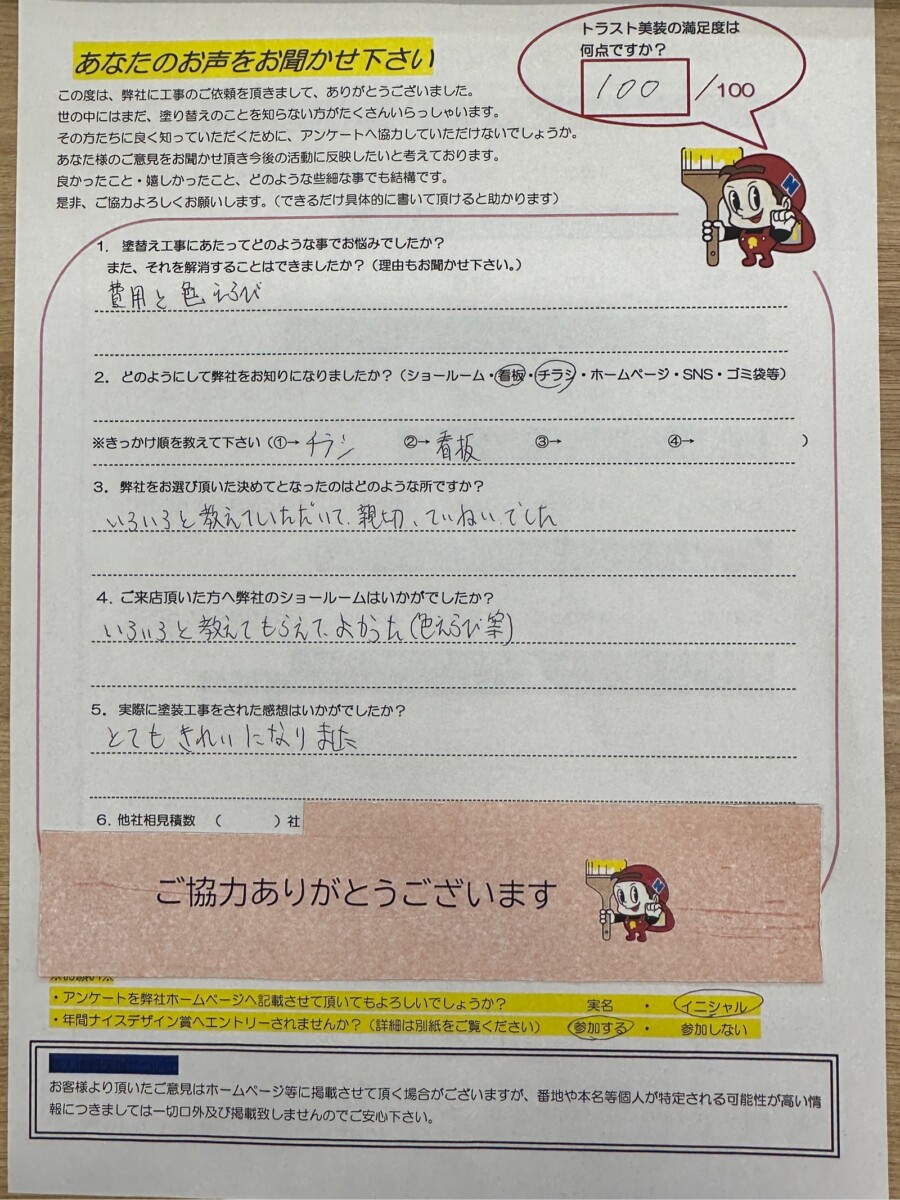 あなたのお声をお聞かせ下さい
トラスト美装の満足度は
何点ですか?
100 /100
この度は、弊社に工事のご依頼を頂きまして、ありがとうございました。
世の中にはまだ、塗り替えのことを知らない方がたくさんいらっしゃいます。
その方たちに良く知っていただくために、アンケートへ協力していただけないでしょうか。
あなた様のご意見をお聞かせ頂き今後の活動に反映したいと考えております。
良かったこと・嬉しかったこと、どのような些細な事でも結構です。
是非、ご協力よろしくお願いします。(できるだけ具体的に書いて頂けると助かります)
N
1. 塗替え工事にあたってどのような事でお悩みでしたか?
また、それを解消することはできましたか?(理由もお聞かせ下さい。)
費用と色えらび
2. どのようにして弊社をお知りになりましたか?(ショールーム・看板・チラシ・ホームページ・SNS・ゴミ袋等)
※きっかけ順を教えて下さい(①→ チラシ ②→ 看板 ③→ ④→ )
3. 弊社をお選び頂いた決めてとなったのはどのような所ですか?
いろいろと教えていただいて、親切、ていねいでした
4. ご来店頂いた方へ弊社のショールームはいかがでしたか?
いろいろと教えてもらえて、よかった(色えらび等)
5. 実際に塗装工事をされた感想はいかがでしたか?
とてもきれいになりました
6. 他社相見積数 ( )社
ご協力ありがとうございます
N
・アンケートを弊社ホームページへ記載させて頂いてもよろしいでしょうか? 実名 ・ イニシャル
・年間ナイスデザイン賞へエントリーされませんか?(詳細は別紙をご覧ください) 参加する ・ 参加しない
お客様より頂いたご意見はホームページ等に掲載させて頂く場合がございますが、番地や本名等個人が特定される可能性が高い情
報につきましては一切口外及び掲載致しませんのでご安心下さい。